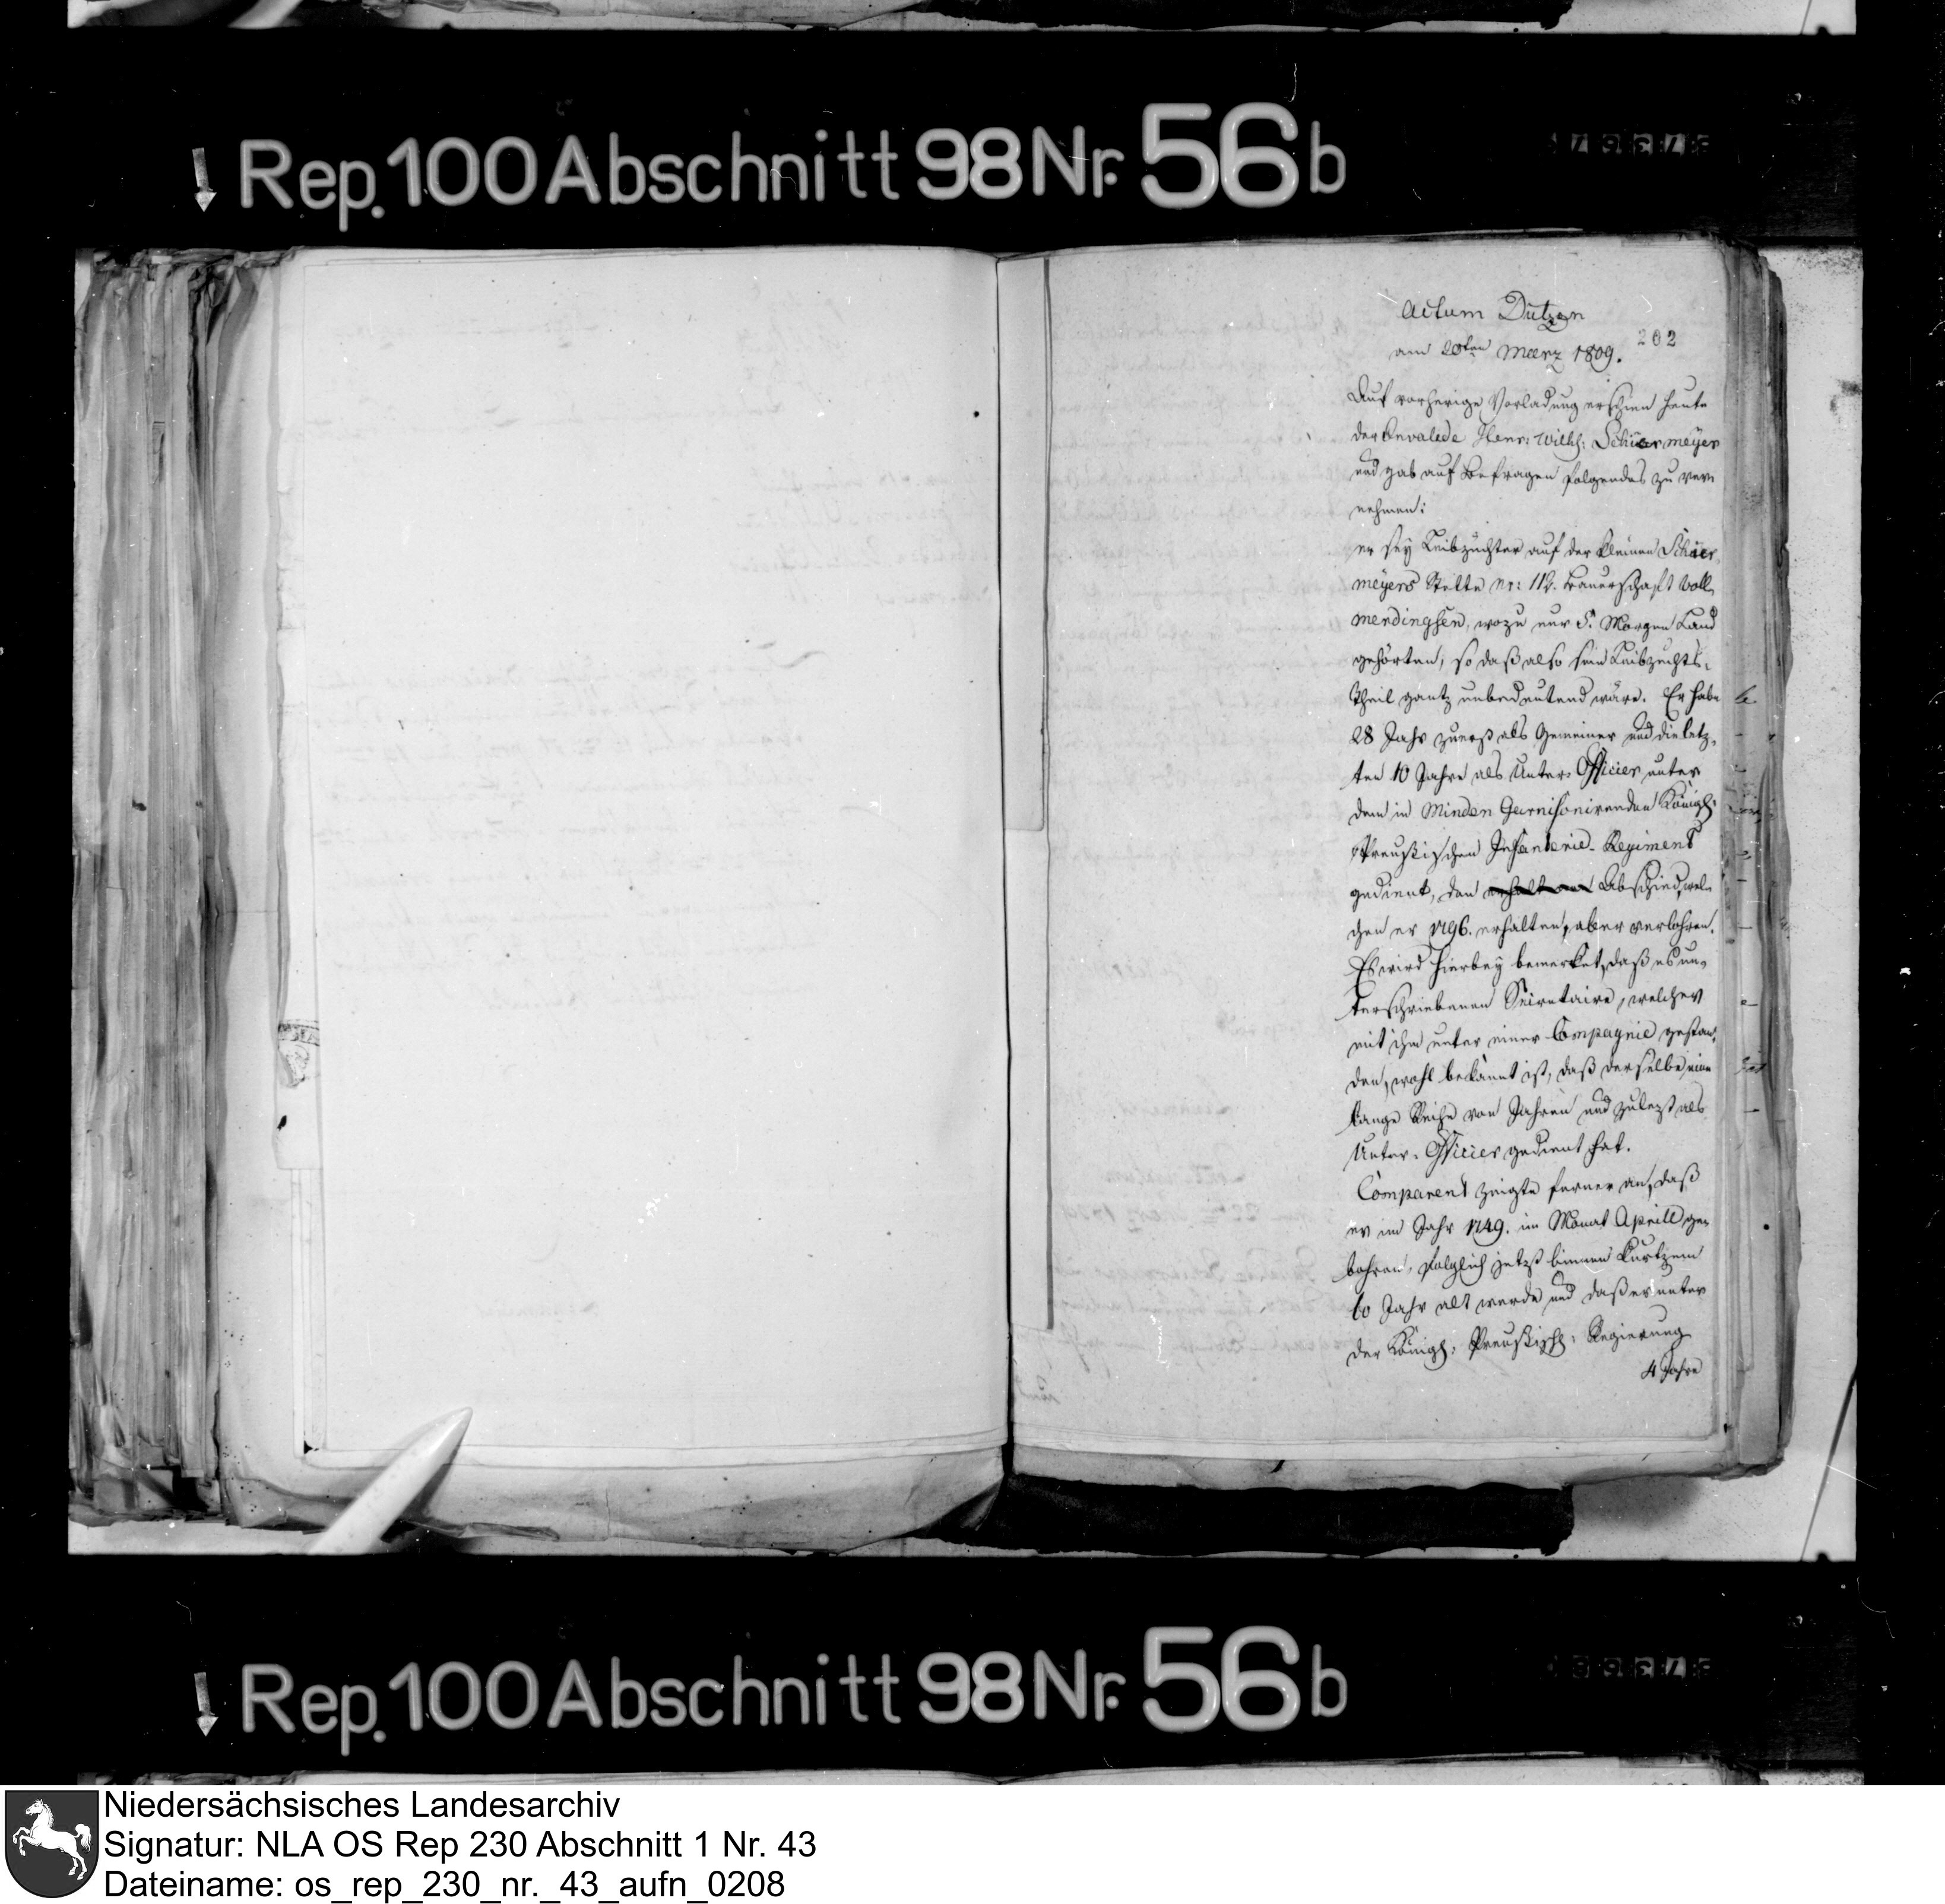 Rep. 100 Abschnitt 98 Nr. 56 b
Actum Dützen
am 20ten Maerz 1809.
202
Auf vorherige Vorladung erschien heute
der Invalide Henr: Wilh: Schiermeÿer
und gab auf Befragen folgendes zu ver-
nehmen:
er seÿ Leibzüchter auf der kleinen Schier-
meÿers Stette nr: 112. Bauerschaft Voll-
merdingsen, wozu nur 5. Morgen Land
gehörten, so daß also sein Leibzuchts-
Theil gantz unbedeutend wäre. Er habe
28 Jahr zuerst als Gemeiner und die letz-
ten 10 Jahre als Unter-Officier unter
dem in Minden Garnisonirenden Königl:
Preußischen Infanterie-Regiment
gedient, den Abschied, wel-
chen er 1796. erhalten, aber verlohren.
Es wird hierbeÿ bemerket, daß es un-
terschriebenen Secretaire, welcher
mit ihm unter einer Compagnie gestan-
den, wohl bekannt ist, daß derselbe eine
lange Reihe von Jahren und zulezt als
Unter-Officier gedient hat.
Comparent zeigte ferner an, daß
er im Jahr 1749. im Monat Aprill ge-
bohren, folglich jetzt binnen kurtzem
60 Jahr alt werde und daß er unter
der Königl: Preußisch: Regierung
4 Jahre
Rep. 100 Abschnitt 98 Nr. 56 b
Niedersächsisches Landesarchiv
Signatur: NLA OS Rep 230 Abschnitt 1 Nr. 43
Dateiname: os_rep_230_nr._43_aufn_0208